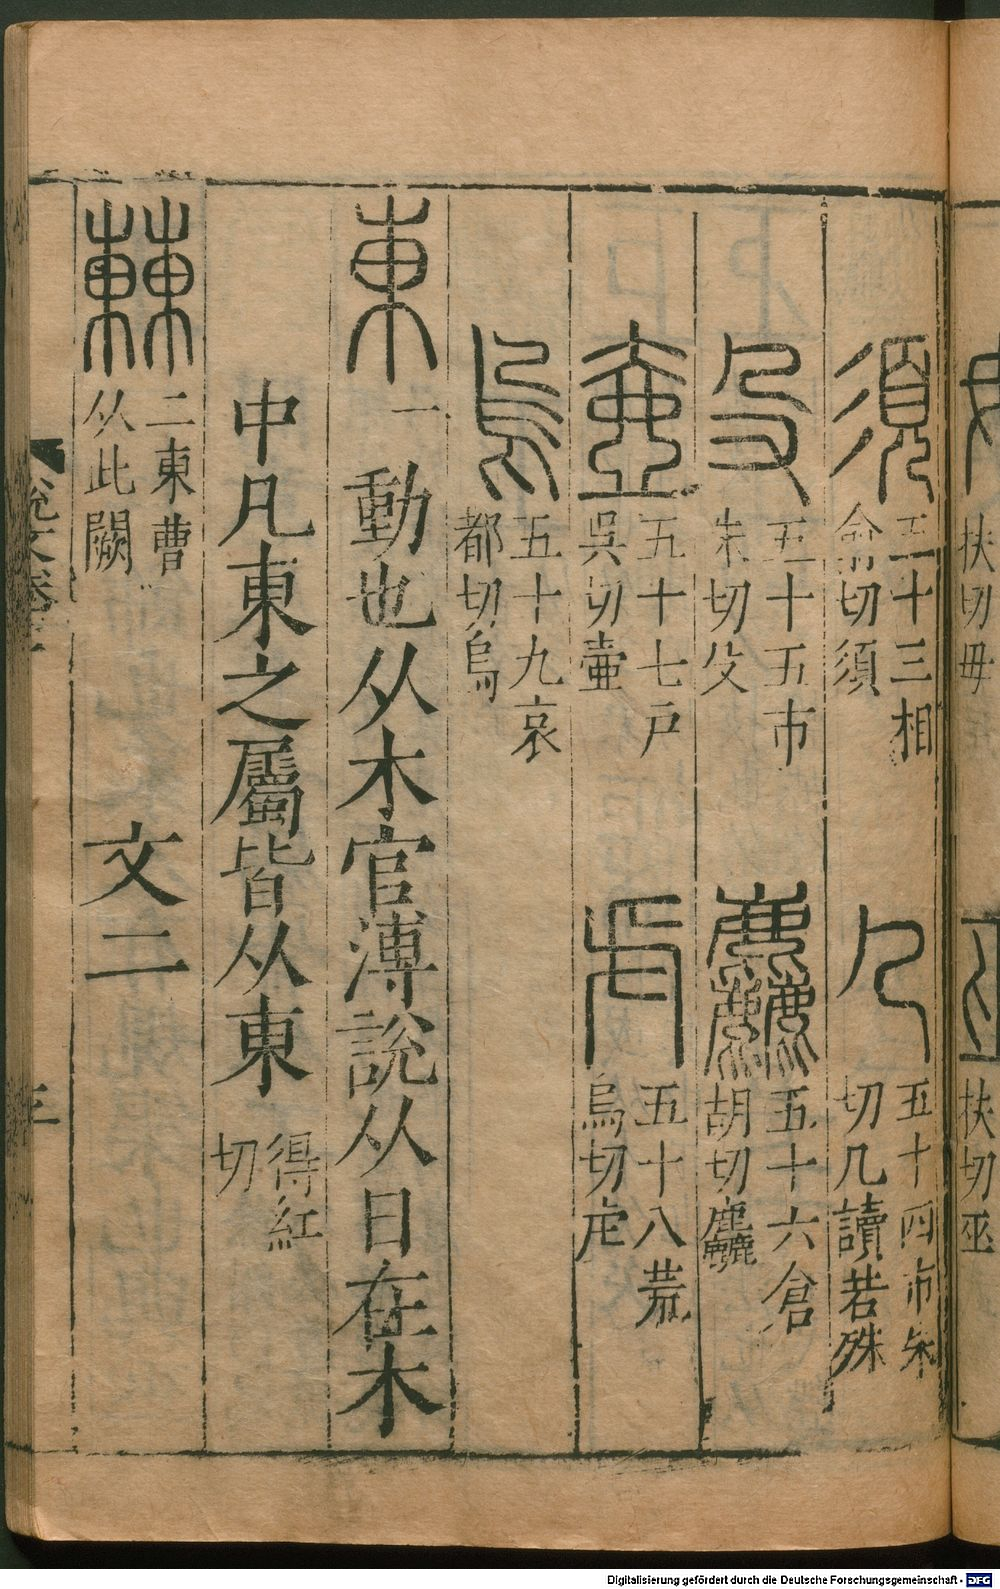 扶切毋 扶切巫
須 五十三相俞切須 𠘧 五十四市朱切几讀若殊
殳 五十五市朱切殳 麤 五十六倉胡切麤
壺 五十七戶吳切壺 虍 五十八荒烏切虍
烏 五十九哀都切烏
東 一 動也从木官溥說从日在木
中凡東之屬皆从東 得紅切
𣍘 二東曹从此闕 文二
說文卷 三
Digitalisierung gefördert durch die Deutsche Forschungsgemeinschaft - DFG